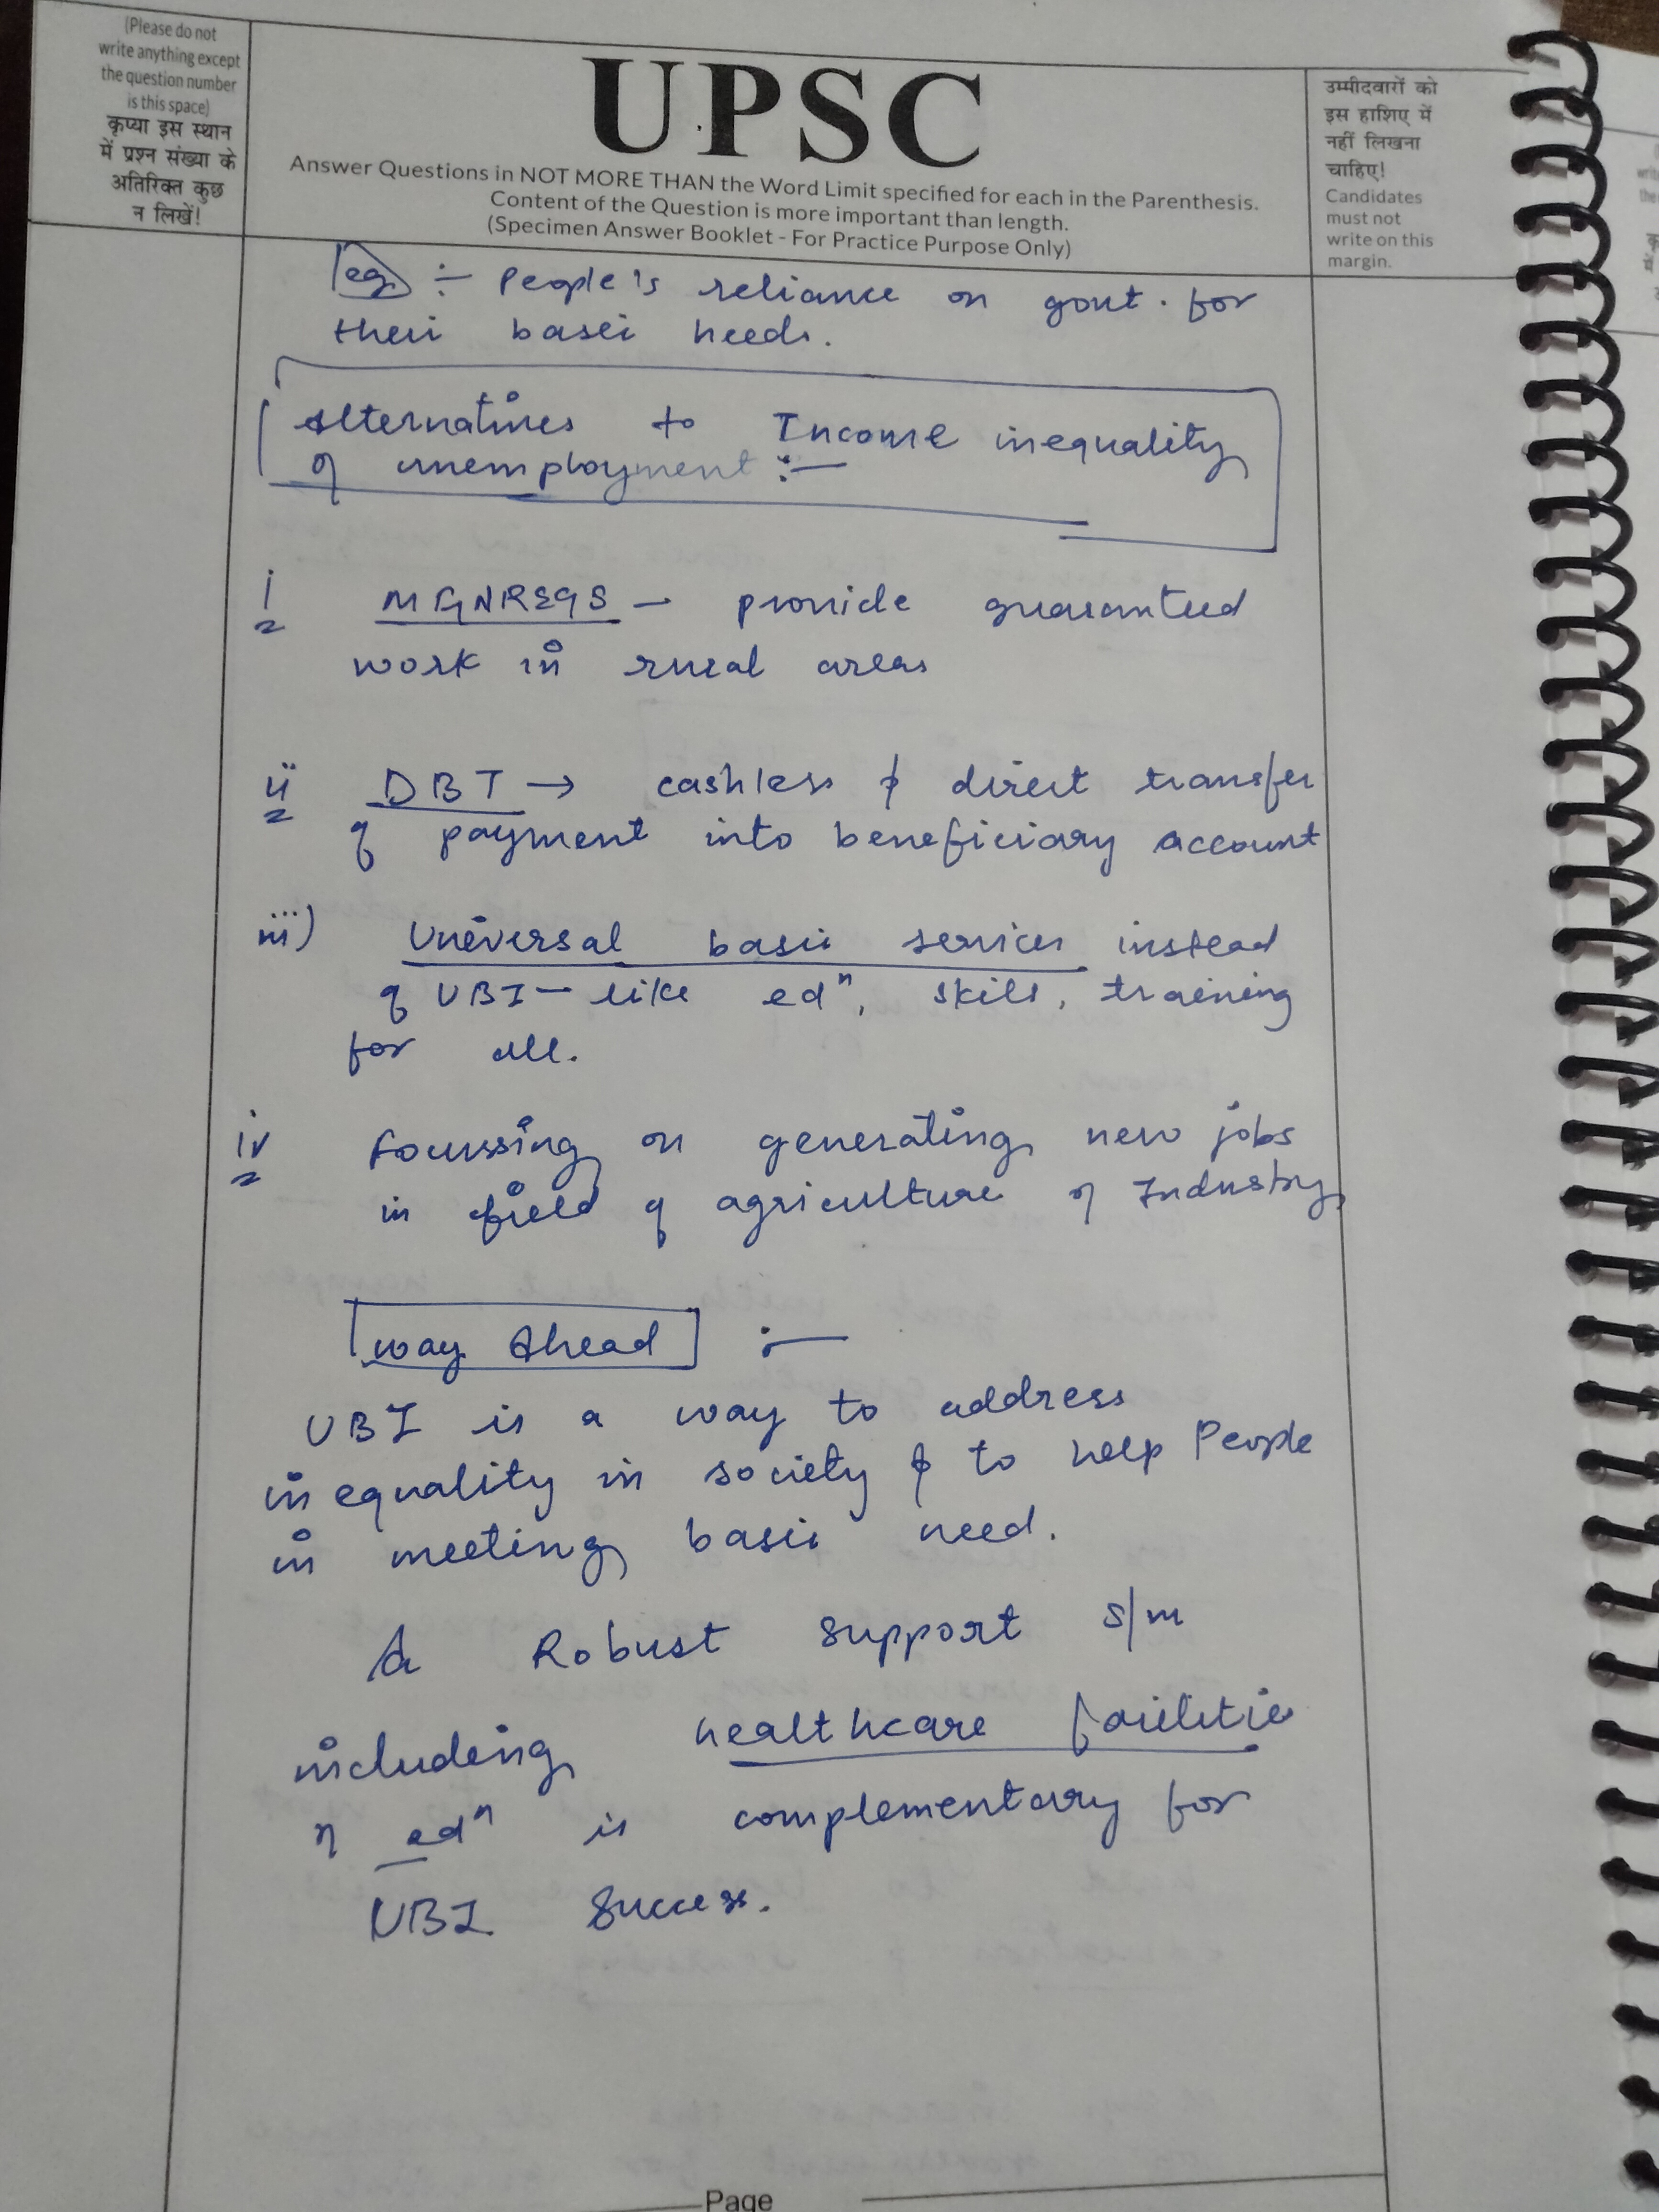 (Please do not
write anything except
the question number
is this space)
कृप्या इस स्थान
में प्रश्न संख्या के
अतिरिक्त कुछ
न लिखें!
UPSC
Answer Questions in NOT MORE THAN the Word Limit specified for each in the Parenthesis.
Content of the Question is more important than length.
(Specimen Answer Booklet - For Practice Purpose Only)
उम्मीदवारों को
इस हाशिए में
नहीं लिखना
चाहिए!
Candidates
must not
write on this
margin.
eg :- People's reliance on govt. for
their basic needs.
Alternatives to Income inequality
& unemployment :-
i MGNREGS - provide guaranteed
work in rural areas
ii DBT → cashless & direct transfer
of payment into beneficiary account
iii) Universal basic services instead
of UBI - like edⁿ, skill, training
for all.
iv focussing on generating new jobs
in field of agriculture & Industry
Way Ahead :-
UBI is a way to address
inequality in society & to help People
in meeting basic need.
A Robust support s/m
including healthcare facilities
& edⁿ is complementary for
UBI success.
Page